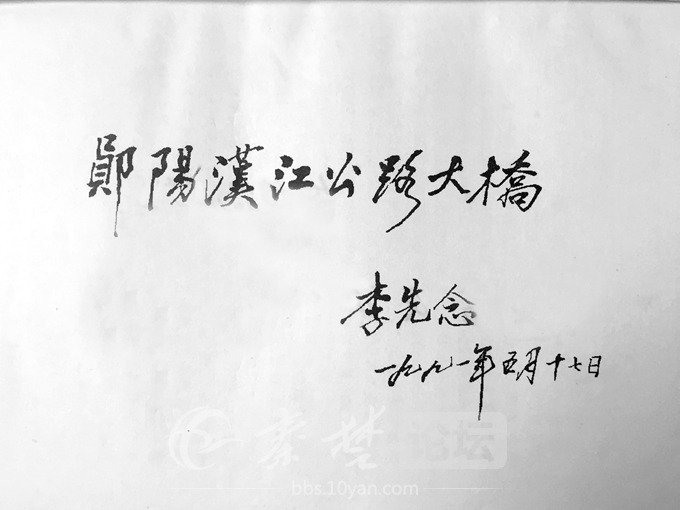 鄖陽漢江公路大橋
李先念
一九九一年五月十七日
秦楚论坛
bbs.10yan.com